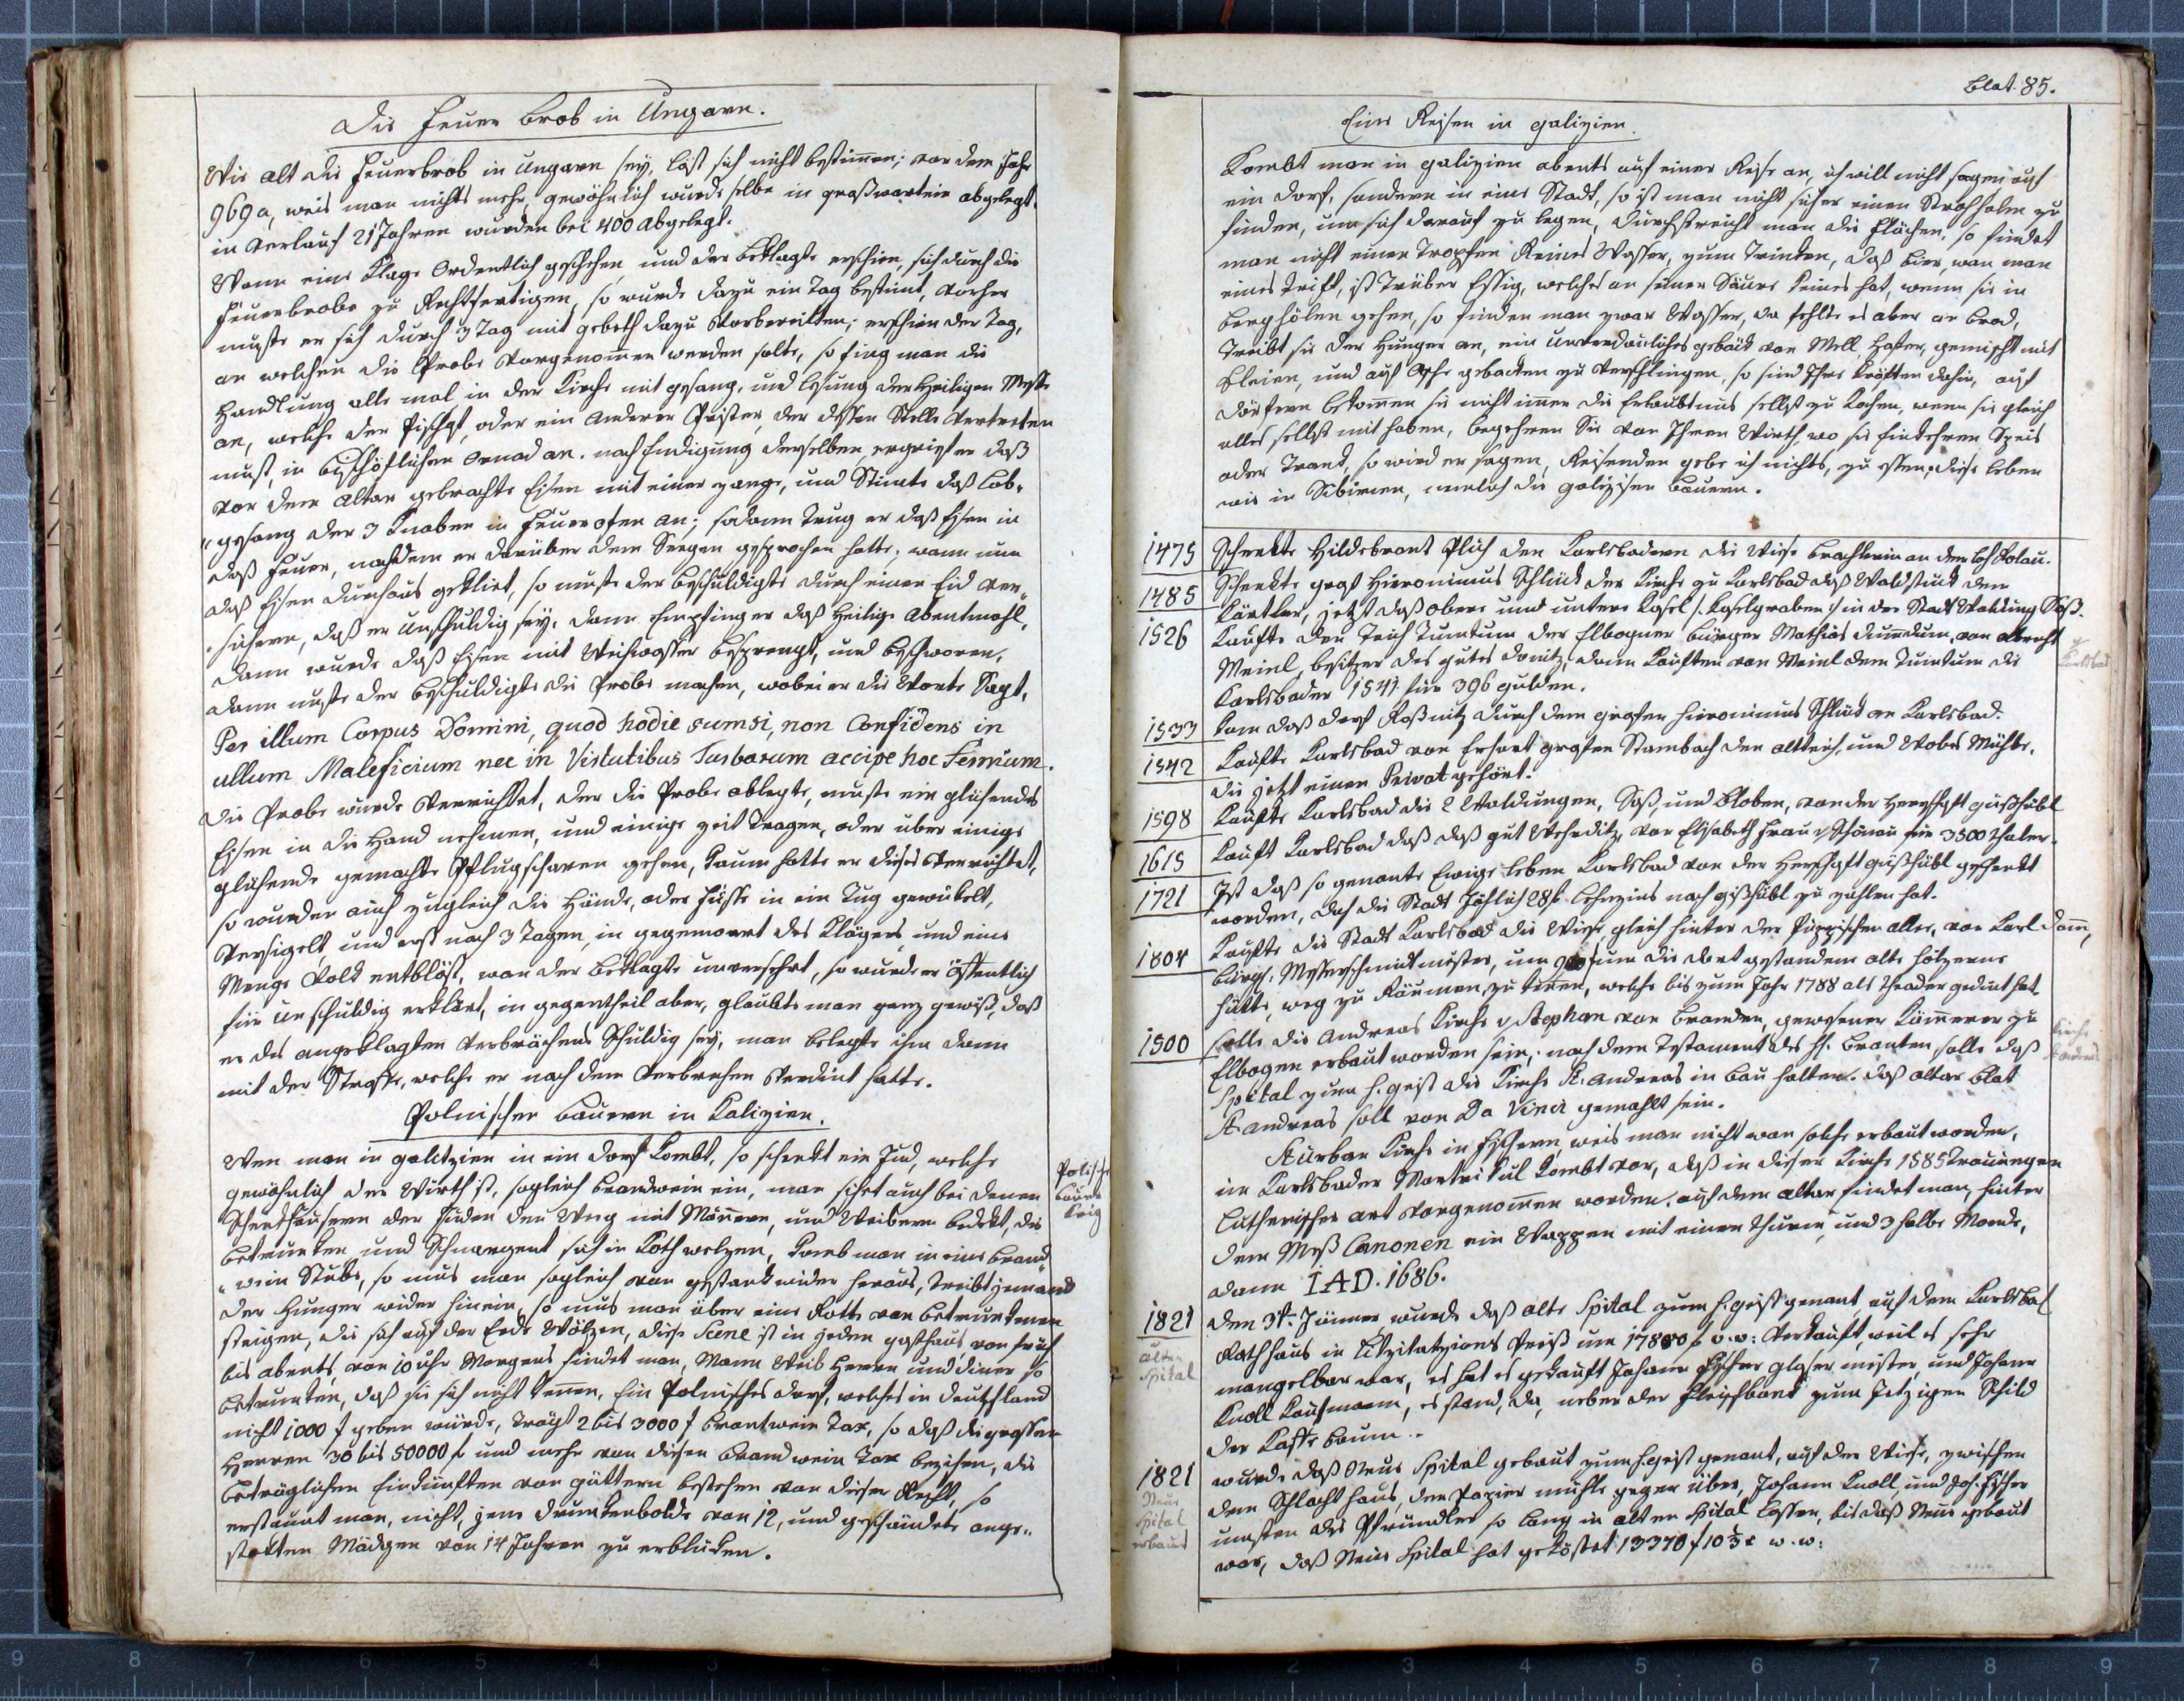 Die Feuer brob in Ungarn.
Wie alt die Feuerbrob in Ungarn sey, läst sich nicht bestimen; vor dem Jahr
969a, weis man nichts mehr, gewöhnlich wurde selbe in groswardein abgelegt.
in verlauf 21 Jahren wurden bei 400 abgelegt.
Wann eine Klage Ordentlich geschehen, und der beklagte erschien, sich durch die
Feuerbrobe zu Rechtfertigen, so wurde dazu ein Tag bestimt, vorher
muste er sich durch 3 Tag mit gebeth dazu Vorbereitten; erschien der Tag,
an welchen die Probe Vorgenomen werden solte, so fing man die
Handlung alle mal in der Kirche mit gesang, und lesung der Heiligen Messe
an, welche der Pischof, oder ein Anderer Prister, der dessen Stelle Vertretten
must, in bischöflichen Ornad an. nach Endigung derselben ergrif er daß
vor dem Altar gebrachte Eisen mit einer zange, und Stimte daß Lob-
"gesang der 3 Knaben in Feuerofen an; sodann Trug er daß Eisen in
daß Feuer, nachdem er darüber dem Seegen gesprochen hatte; wann nun
daß Eisen durchaus geklüet, so muste der beschuldigte durch einen Eid ver-
"sichern, daß er Unschuldig sey, dann Empfing er daß Heilige Abentmahl,
dann wurde daß Eisen mit Weihwasser besprengt, und beschworen,
dann muste der beschuldigte die Probe machen, wobei er die Worte Sagt,
Per illum Corpus Domini, quod hodie sumsi, non Confidens in
ullum Maleficium nec in Virtutibus Turbarum accipe hoc Ferrum.
Die Probe wurde Verrichtet, der die Probe ablegte, muste ein glühendes
Eisen in die Hand nehmen, und einige zeit Tragen, oder über einige
glühende gemachte Pflugscharen gehen, Kaum hatte er dieses Verrichtet,
so wurden auch zugleich die Hände, oder Füsse in ein Tug gewükelt,
Versigelt, und erst nach 3 Tagen, in gegenwart des Klägers, und eine
Menge Volk entblöst, war der beklagte unversehrt, so wurde er öffentlich
für Unschuldig erklärt, in gegentheil aber, glaubte man ganz gewiß, daß
er des angeklagten Verbrächens Schuldig sey, man belegte ihn dann
mit der Straffe, welche er nach dem Verbrechen Verdint hatte.
Polnischer Bauern in Kalizien.
Wen man in galitzien in ein dorf Kombt, so schenkt ein Jud, welche
gewöhnlich der Wirth ist, sogleich brandwein ein, man sihet auch bei denen
Schenkhäusern der Juden den Weg mit Männern, und Weibern bedekt, die
betrunken, und Schnargent sich in Koth welzen, Komb man in eine brand-
"wein Stube, so mus man sogleich von gestank wider heraus, treibt jemand
der Hunger wider hinein, so mus man über eine Rotte von betrunkenen
steigen, die sich auf der Erde Wälzen, diese Scene ist in jeden gasthaus von früh
bis abents, von 10 uhr Morgens findet man, Mann Weib Herrn und diener so
betrunken, daß sie sich nicht kenen, Ein Polnisches dorf, welches in deutschland
nicht 1000 f geben würde, trägt 2 bis 3000 f brantwein Tax, so daß die grossen
Herren 30 bis 50000 f und mehr von diesen brandwein Tax bezihen, die
beträglichen Einkünften von güttern bestehen von dieser Recht, so
erstaunt man, nicht, jene drunkenbolde von 12, und geschändete ange-
stekten Mädgen von 14 Jahren zu erbliken.
Polische
bauern
Blat. 85.
Eine Reisen in galizien.
Kombt man in galizien abents auf einer Reise an, ich will nicht sagen auf
ein dorf, sondern in eine Stadt, so ist man nicht sicher einen Strohhalm zu
finden, um sich darauf zu legen, durchstreicht man die Flächen, so findet
man nicht einen Tropfen Reines Wasser, zum Trinken, daß bier, wan man
eines trift, ist Trüber Essig, welches an seiner Säure keines hat, wenn sie in
berghölen gehen, so finden man zwar Wasser, da fehlte es aber an brod,
Treibt sie der Hunger an, ein Unverdauliches gebäck von Mell, Hafer, gemischt mit
Kleien, und auf Asche gebacken zu Verschlingen, so sind Ihre Kräften dahin, auf
dörfern bekomen sie nicht imer die Erlaubtnuß sellst zu Kochen, wenn sie gleich
alles sellst mit haben, begehren Sie von Ihren Wirth wo sie Einkehren Speis
oder Trank, so wird er sagen, Reisenden gebe ich nichts, zu essen, diese leben
wie in Sibirien, nemlich die galizischen bauern.
1475 Schenkte Hildebrant Pluch den Karlsbadern die Wiese brachlerin an dem bach Rolau.
1485 Schenkte graf Hieronimus Schlück der Kirche zu Karlsbad daß Waldstück dem
Kärtler, jetzt daß obere und untere Kohel /: Kohelgraben :/ in der Stadt Waldung Soß.
1526 Kaufte den Teich Tuntum der Elbogner bürger Mathias dumdum, von Albrecht
Meinl, besitzer des gutes donitz, dann Kauften von Meinl dem Tumtum die
Karlsbader 1541 für 396 gulden.
1533 Kam daß dorf Rosnitz durch dem grafen Hieronimus Schlück an Karlsbad.
1542 Kaufte Karlsbad von Erhart grafen Stambach den altteich, und Wobes Mühle,
die jetzt einen Privat gehört.
1598 Kaufte Karlsbad die 2 Waldungen, Soß, und Kloben, von der Herschaft güßhübl
1615 Kauft Karlsbad daß daß gut Wehediz von Elisabeth Frau v Schönau für 3500 thaler.
1721 Ist daß so genante Ewige leben Karlsbad von der Herschaft gißhübl geschenkt
worden, doch die Stadt Jährlich 28 f. Lehnzins nach gißhübl zu zahlen hat.
1804 Kaufte die Stadt Karlsbad die Wiese gleich hinter der Pupischen alle, von Karl Dam,
bürgl. Messerschmidtmeister, um 900 f um die dort gestandene alte hölzerne
hütte, weg zu Räumen, zu könen, welche bis zum Jahr 1788 als theader gedint hat.
1500 solle die Andreas Kirche v Stephan von branden, gewesener Kämerer zu
Elbogen erbaut worden sein, nach dem Testament des H. branten solle daß
Spital zum h. geist die Kirche St. Andreas in bau halten. daß altar blat
St. Andreas soll von Da Vinci gemahlt sein.
St Urban Kirche in Fischern, weis man nicht wan solche erbaut worden,
im Karlsbader Martrikul Kombt vor, daß in dieser Kirche 1585 Trauungen
lutherischer art vorgenomen worden. auf dem altar findet man, hinter
dem Meß Canonen ein Wappen mit einen thurm, und 3 halbe Monde,
dann I A D. 1686.
1821 den 3t. Jänner wurde daß alte Spital zum h. geist genant auf dem Karlsbad
Rathhaus in Lizitazions Preiß um 17880 f w. w: Verkauft, weil es sehr
mangelbar war, es hat es gekauft Johann Fischer glaser meister, und Johann
Knoll Kaufmann, es stand, da, neben der Fleischbank zum Jetzigen Schild
der Kaffe baum.
alten
Spital
1821 wurde daß Neue Spital gebaut zum h. geist genant, auf der Wiese, zwischen
dem Schlachthaus, der Papier mühle gegen über, Johann Knoll, und Joh. Fischer
musten die Pfründler so lang in alten Spital lassen, bis daß Neue gebaut
war, daß Neue Spital hat gekostet 13370 f 10⅓ x w. w:
Neue
Spital
erbaut
Kirche
St andreas